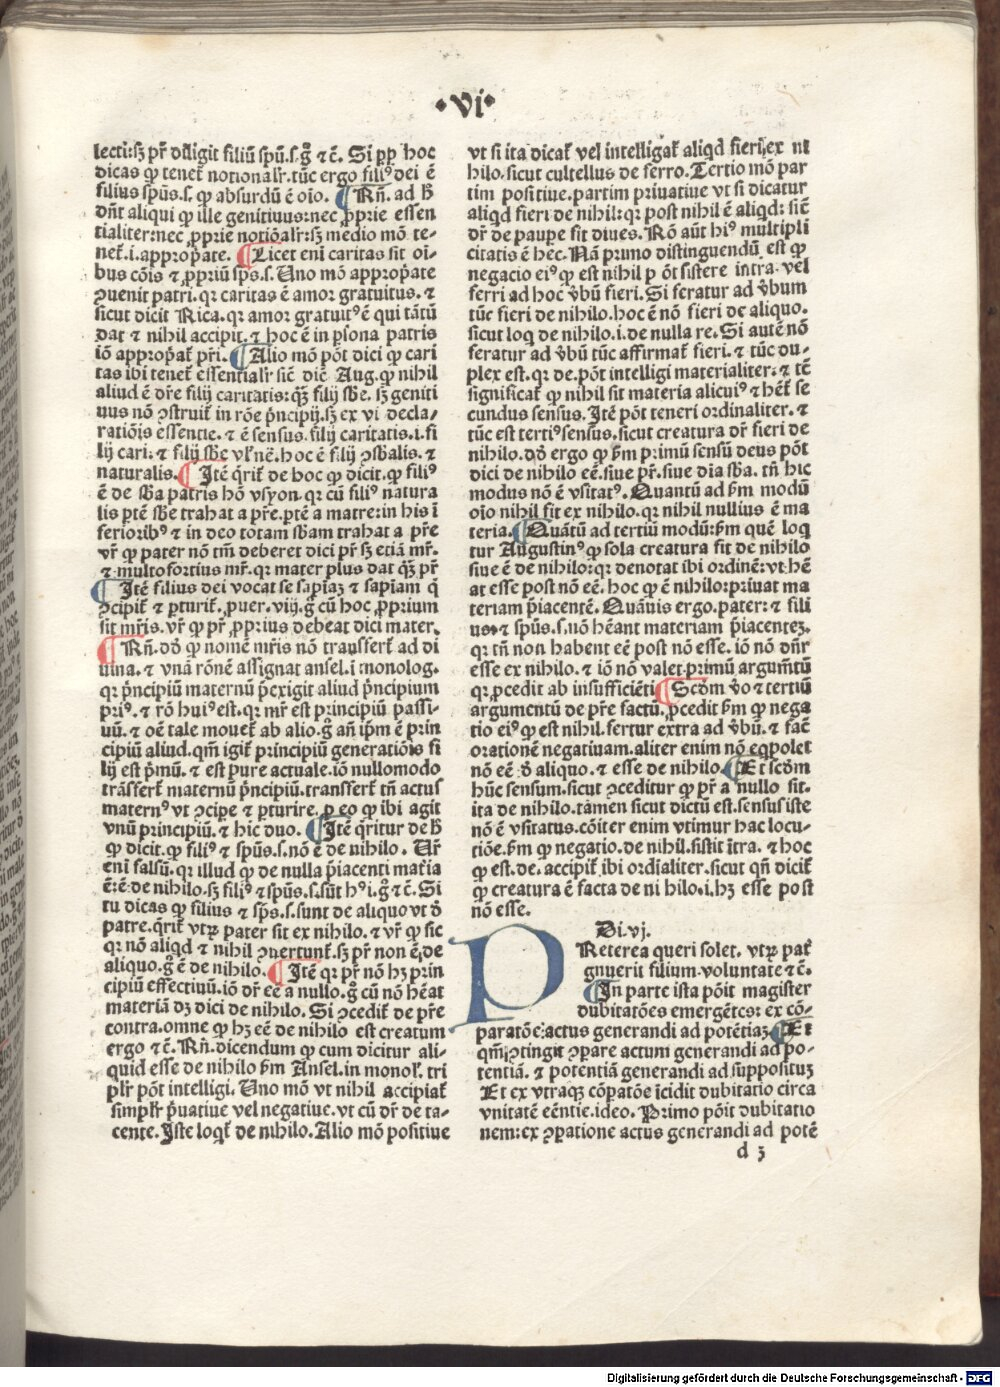 •vi•
lecti:sꝫ pr̄ diligit filiū spū.s.gͦ ⁊ c̄. Si ꝓpꝑ hoc
dicas ꝙ tenet᷑ notionalr̄.tūc ergo filiꝰ dei ē
filius spūs.s. ꝙ absurdū ē oīo. ¶ Rn̄. ad ħ
dn̄t aliqui ꝙ ille genitiuus:nec ꝓprie essen
tialiter:nec ꝓprie notiōalr̄:sꝫ medio mō te-
net᷑.i.appropͣate. ¶ Licet eni caritas sit oi-
bus cōis ⁊ ꝓpriū sp̄s.s. Uno mō appropͣate
ꝯuenit patri.qr caritas ē amor gratuitus. ⁊
sicut dicit Rica.qr amor gratuitꝰ ē qui tātū
dat ⁊ nihil accipit. ⁊ hoc ē in ꝑsona patris
iō appropͣat᷑ pr̄i. ¶ Alio mō pōt dici ꝙ cari
tas ibi tenet᷑ essentialr̄ sic̄ dic̄ Aug. ꝙ nihil
aliud ē dr̄e filij caritatis:qͣꝫ filij sb̄e. sꝫ geniti
uus nō ꝯstruit᷑ in rōe pͥncipij.sꝫ ex vi decla-
ratiōis essentie. ⁊ ē sensus.filij caritatis.i.fi
lij cari: ⁊ filij sb̄e vl̓ nē.hoc ē filij ꝯsb̄alis. ⁊
naturalis. ¶ Itē q̄rit᷑ de hoc ꝙ dicit.ꝙ filiꝰ
ē de sb̄a patris hō vsyon.qr cū filiꝰ natura
lis ꝑtē sb̄e trahat a pr̄e.ꝑtē a matre:in his ī
ferioribꝰ ⁊ in deo totam sb̄am trahat a pr̄e
vr̄ ꝙ pater nō tm̄ deberet dici pr̄ sꝫ etiā mr̄.
⁊ multofortius mr̄.qr mater plus dat qͣꝫ pr̄
¶ Itē filius dei vocat se sapīaꝫ ⁊ sapīam qͥ
ꝯcipit᷑ ⁊ ꝑturit᷑.ꝓuer.viij.gͦ cū hoc ꝓprium
sit mr̄is.vr̄ ꝙ pr̄ ꝓprius debeat dici mater.
¶ Rn̄.dō ꝙ nomē mr̄is nō transfert᷑ ad di
uina. ⁊ vnā rōnē assignat ansel.i monolog.
qr pͥncipiū maternū p̄exigit aliud pͥncipium
priꝰ. ⁊ rō huiꝰ est.qr mr̄ est principiū passi-
uū. ⁊ oē tale mouet᷑ ab alio.gͦ an̄ ip̄m ē prin
cipiū aliud.qm̄ igit᷑ principiū generatiōis fi
lij est pͥmū. ⁊ est pure actuale.iō nullomodo
trāsfert᷑ maternū pͥncipiū.transfert᷑ tn̄ actus
maternꝰ vt ꝯcipe ⁊ ꝑturire.ꝑ eo ꝙ ibi agit
vnū principiū. ⁊ hic duo. ¶ Itē q̄ritur de ħ
ꝙ dicit.ꝙ filiꝰ ⁊ spūs.s.nō ē de nihilo. Ur̄
eni falsū.qr illud ꝙ de nulla p̄iacenti mat̄ia
ē:ē de nihilo.sꝫ filiꝰ ⁊ spūs.s.sūt hꝰi.gͦ ⁊ c̄. Si
tu dicas ꝙ filius ⁊ sp̄s.s.sunt de aliquo vt ð
patre.q̄rit᷑ vtꝝ pater sit ex nihilo. ⁊ vr̄ ꝙ sic
qr nō aliqd ⁊ nihil ꝯuertunt᷑.sꝫ pr̄ non ē de
aliquo.gͦ ē de nihilo. ¶ Itē qr pr̄ nō hꝫ prin
cipiū effectiuū.iō dr̄ eē a nullo.gͦ cū nō hēat
materiā dꝫ dici de nihilo. Si ꝯcedit᷑ de pr̄e
contra.omne ꝙ hꝫ eē de nihilo est creatum
ergo ⁊ c̄. Rn̄.dicendum ꝙ cum dicitur ali-
quid esse de nihilo ẜm Ansel.in monol̓. tri
plr̄ pōt intelligi. Uno mō vt nihil accipiat᷑
simplr̄ p̄uatiue vel negatiue.vt cū dr̄ de ta-
cente. Iste loqt᷑ de nihilo. Alio mō positiue
vt si ita dicat᷑ vel intelligat᷑ aliqd fieri ex ni
hilo.sicut cultellus de ferro. Tertio mō par
tim positiue.partim priuatiue vt si dicatur
aliqd fieri de nihil:qr post nihil ē aliqd: sic̄
dr̄ de paupe fit diues. Rō aūt hiꝰ multipli
citatis ē hec. Nā primo distinguendū est ꝙ
negacio eiꝰ ꝙ est nihil pōt sistere intra.vel
ferri ad hoc v̄bū fieri. Si feratur ad v̄bum
tūc fieri de nihilo.hoc ē nō fieri de aliquo.
sicut loq de nihilo.i.de nulla re. Si autē nō
feratur ad v̄bū tūc affirmat᷑ fieri. ⁊ tūc du-
plex est.qr de.pōt intelligi materialiter. ⁊ tē
significat᷑ ꝙ nihil sit materia alicuiꝰ ⁊ hēt᷑ se
cundus sensus. Itē pōt teneri ordinaliter. ⁊
tūc est tertiꝰ sensus.sicut creatura dr̄ fieri de
nihilo.dō ergo ꝙ ẜm primū sensū deus pōt
dici de nihilo eē.siue pr̄.siue dīa sb̄a. tn̄ hic
modus nō ē vsitatꝰ. Quantū ad ẜm modū
oīo nihil fit ex nihilo.qr nihil nullius ē ma
teria. ¶ Quātū ad tertiū modū:ẜm quē loq
tur Augustinꝰ ꝙ sola creatura fit de nihilo
siue ē de nihilo:qr denotat ibi ordinē:vt hē
at esse post nō eē.hoc ꝙ ē nihilo:priuat ma
teriam p̄iacentē. Quāuis ergo.pater: ⁊ fili
us. ⁊ spūs.s.nō hēant materiam p̄iacenteꝫ.
qr tn̄ non habent eē post nō esse. iō nō dn̄r
esse ex nihilo. ⁊ iō nō valet primū argum̄tū
qr ꝓcedit ab insufficiēti. ¶ Scd̄m v̄o ⁊ tertiū
argumentū de pr̄e factū.ꝓcedit ẜm ꝙ nega
tio eiꝰ ꝙ est nihil.fertur extra ad v̄bū. ⁊ fac̄
orationē negatiuam.aliter enim nō eqpolet
nō eē ð aliquo. ⁊ esse de nihilo. ¶ Et scd̄m
hūc sensum.sicut ꝯceditur ꝙ pr̄ a nullo sit.
ita de nihilo.tamen sicut dictū est.sensus iste
nō ē vsitatus.cōiter enim vtimur hac locu-
tiōe.ẜm ꝙ negatio.de nihil.sistit īt̄ra. ⁊ hoc
ꝙ est.de.accipit᷑ ibi ordialiter.sicut qn̄ dicit᷑
ꝙ creatura ē facta de ni hilo.i.hꝫ esse post
nō esse.
Di.vj.
PReterea queri solet. vtꝝ pat᷑
gnuerit filium voluntate ⁊ c̄.
¶ In parte ista pōit magister
dubitatōes emergētes: ex cō-
paratōe:actus generandi ad potētiaꝫ. ¶ Et
qm̄ ꝯtingit ꝯpare actum generandi ad po-
tentiā. ⁊ potentiā generandi ad suppositūꝫ
Et ex vtraqꝫ cōpatōe īcidit dubitatio circa
vnitatē eēntie.ideo. Primo pōit dubitatio
nem:ex ꝯpatione actus generandi ad potē
d 3
Digitalisierung gefördert durch die Deutsche Forschungsgemeinschaft - DFG